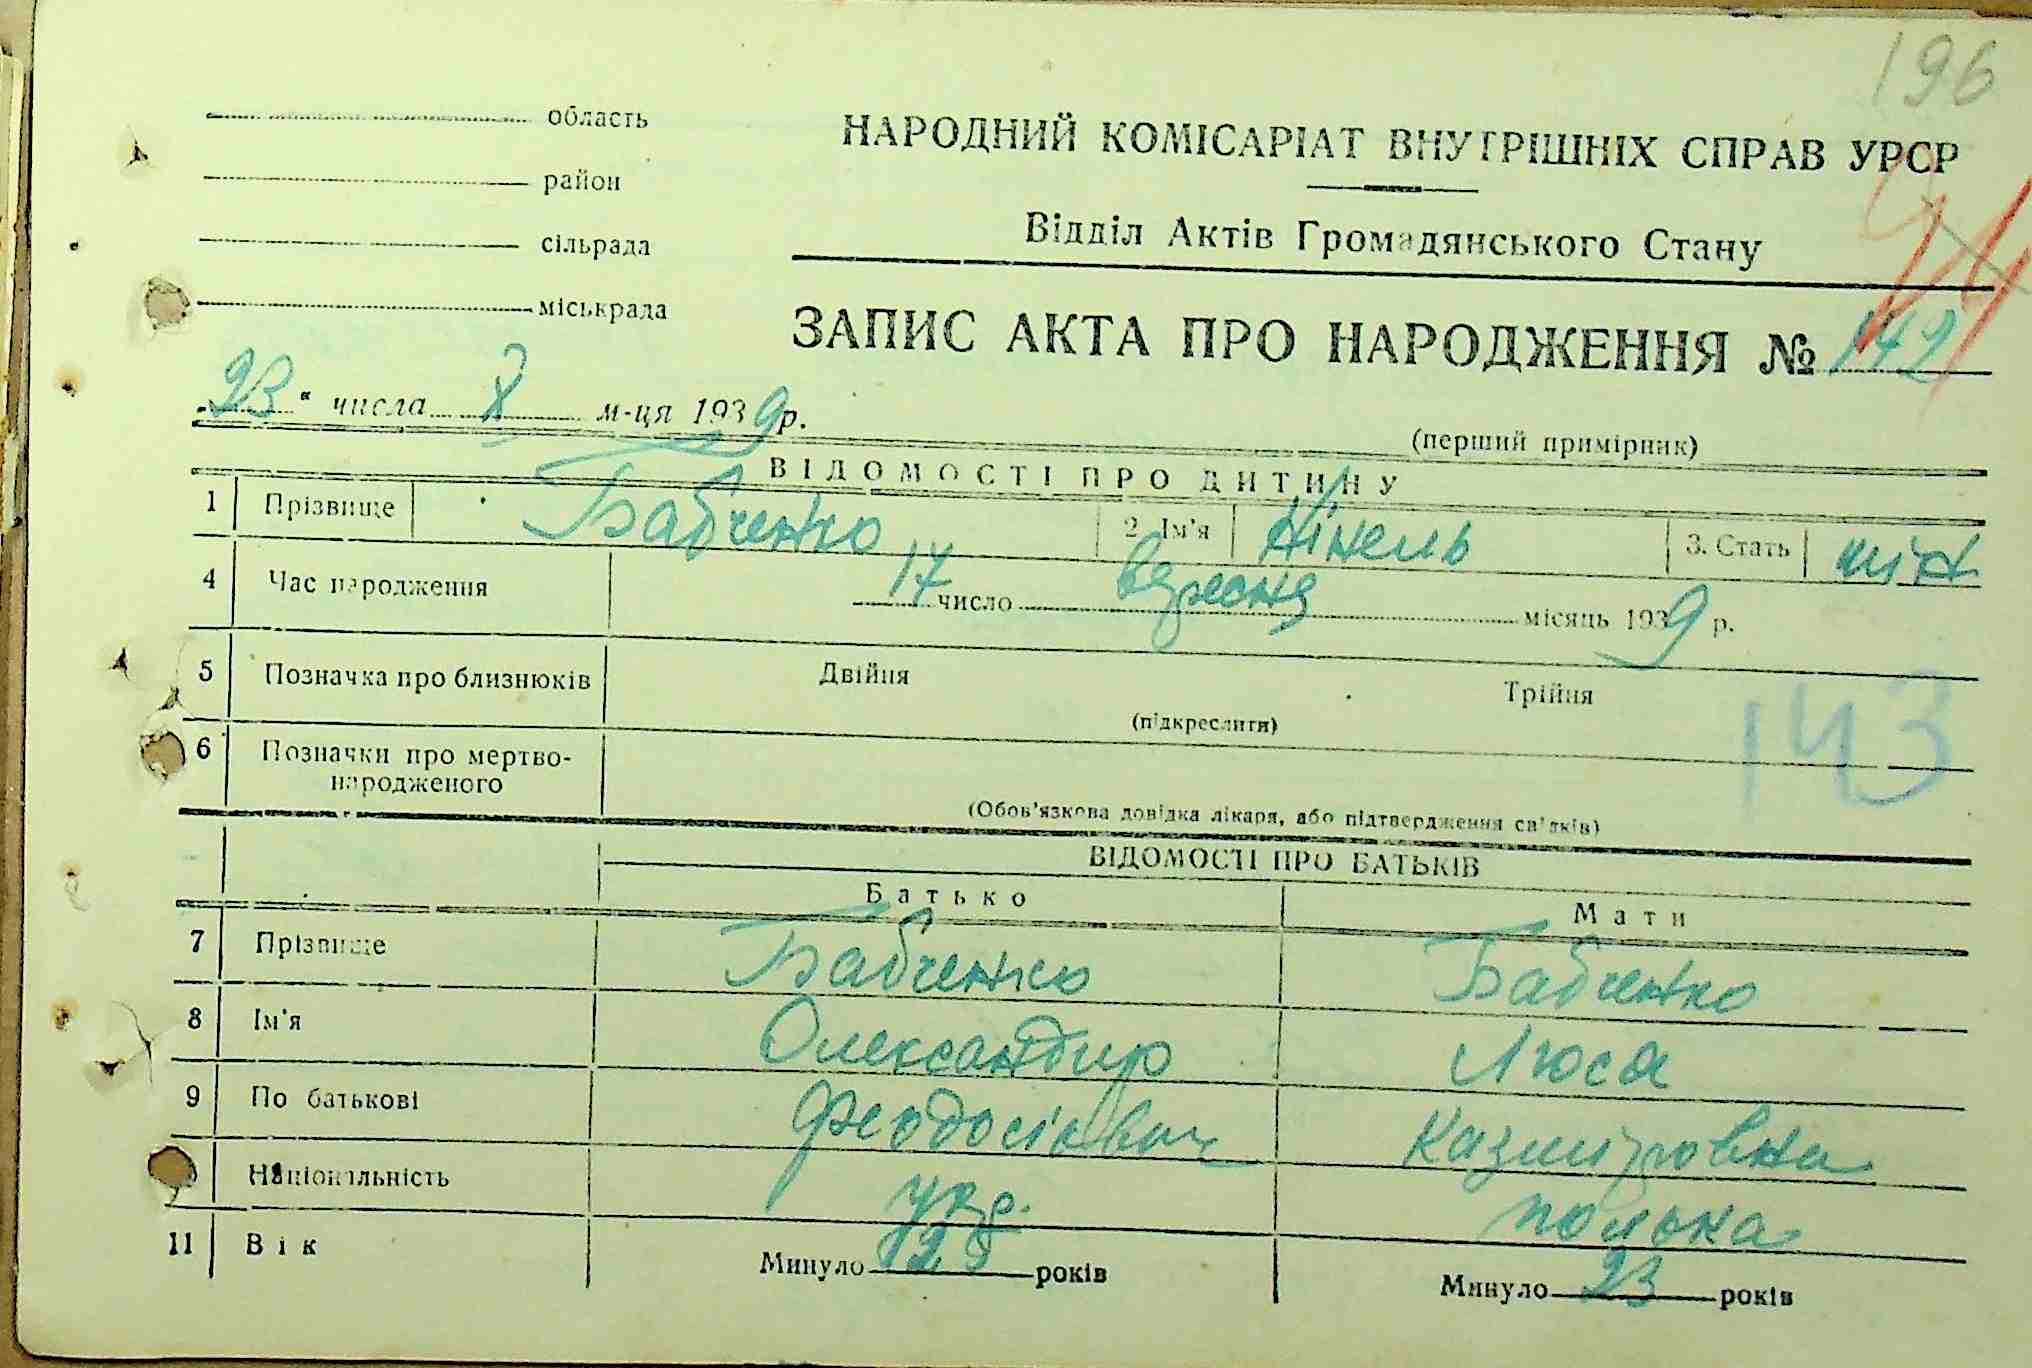 196
область
район
сільрада
міськрада
НАРОДНИЙ КОМІСАРІАТ ВНУТРІШНІХ СПРАВ УРСР
Відділ Актів Громадянського Стану
ЗАПИС АКТА ПРО НАРОДЖЕННЯ № 142
„23“ числа X м-ця 1939 р.
(перший примірник)
ВІДОМОСТІ ПРО ДИТИНУ
1 Прізвище Бабченко 2. Ім'я Нінель 3. Стать жін
4 Час народження 17 число вересня місяць 1939 р.
5 Позначка про близнюків Двійня Трійня
(підкреслити)
143
6 Позначки про мертво-
народженого
(Обов'язкова довідка лікаря, або підтвердження свідків)
ВІДОМОСТІ ПРО БАТЬКІВ
Батько Мати
7 Прізвище Бабченко Бабченко
8 Ім'я Олександир Люся
9 По батькові Феодосієвич Казміровна
Національність укр. полька
11 Вік Минуло 28 років Минуло 23 років